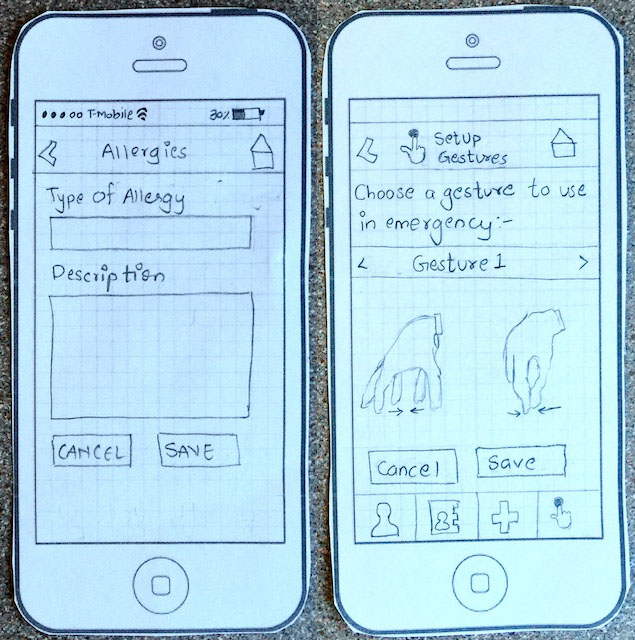 T-Mobile 30%
Allergies
Type of Allergy
Description
CANCEL SAVE
Setup
Gestures
Choose a gesture to use
in emergency:-
< Gesture 1 >
Cancel Save